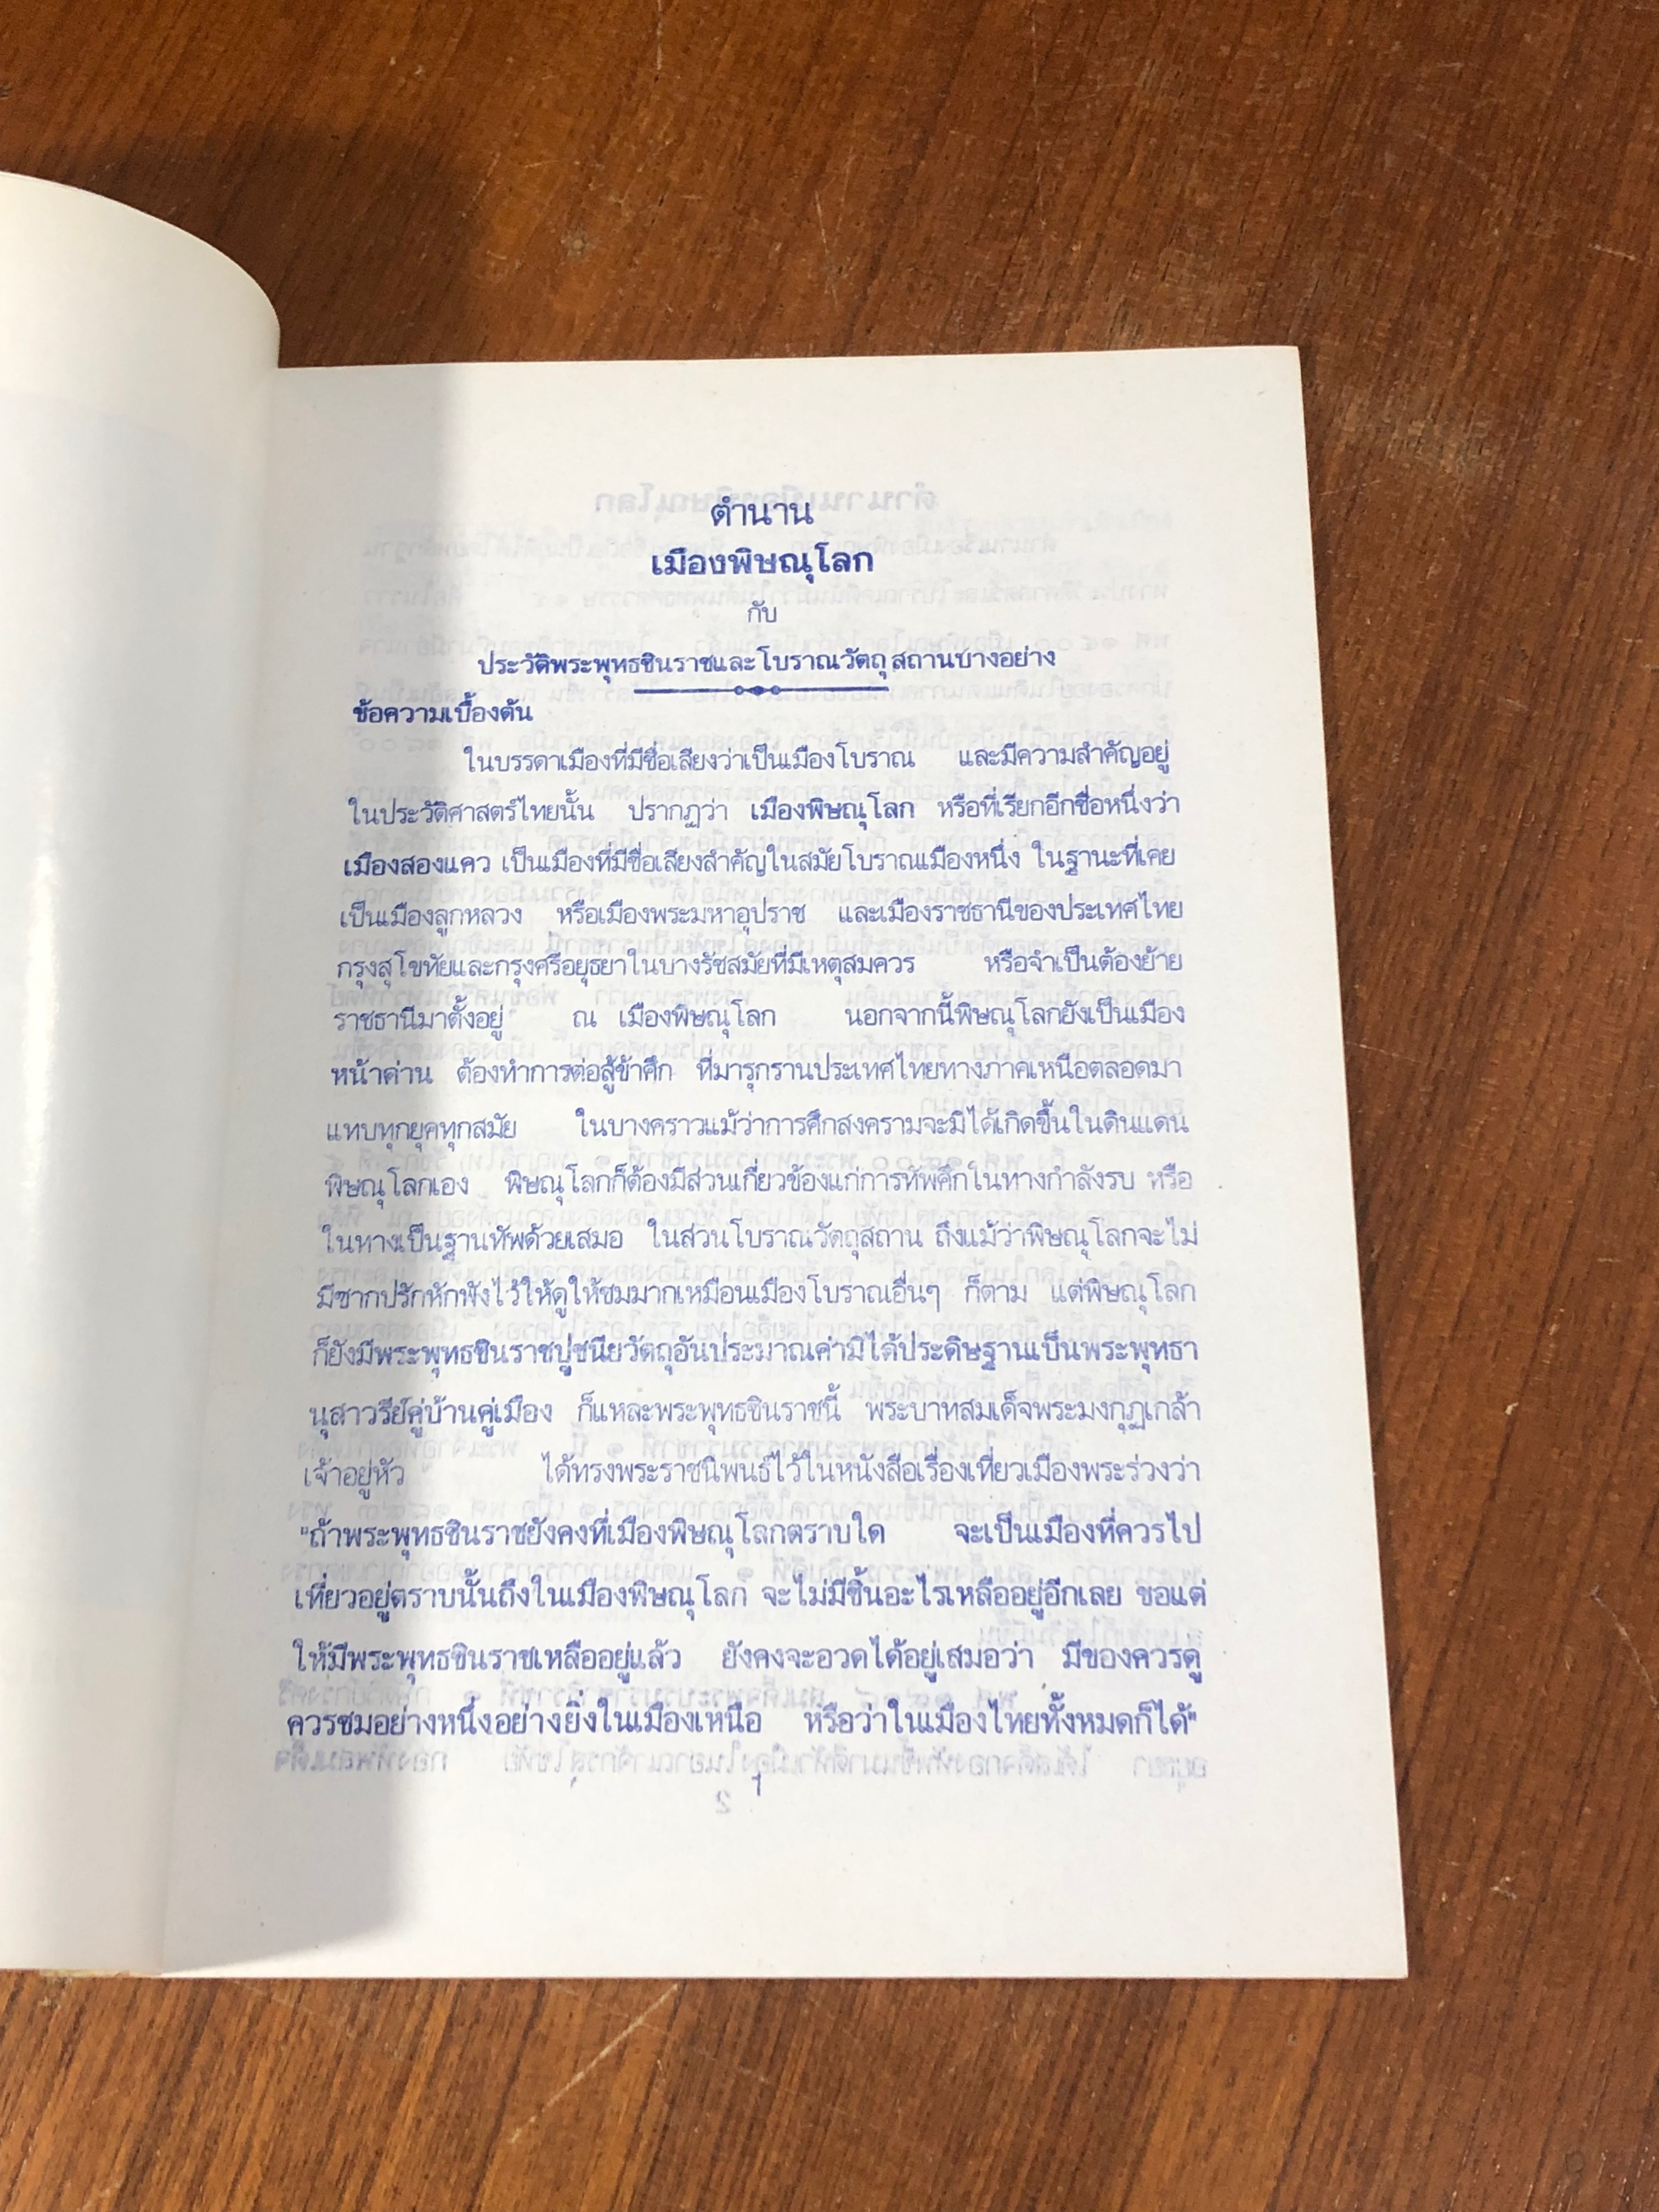 ตำนาน
เมืองพิษณุโลก
กับ
ประวัติพระพุทธชินราชและโบราณวัตถุสถานบางอย่าง
ข้อความเบื้องต้น
ในบรรดาเมืองที่มีชื่อเสียงว่าเป็นเมืองโบราณ และมีความสำคัญอยู่
ในประวัติศาสตร์ไทยนั้น ปรากฏว่า เมืองพิษณุโลก หรือที่เรียกอีกชื่อหนึ่งว่า
เมืองสองแคว เป็นเมืองที่มีชื่อเสียงสำคัญในสมัยโบราณเมืองหนึ่ง ในฐานะที่เคย
เป็นเมืองลูกหลวง หรือเมืองพระมหาอุปราช และเมืองราชธานีของประเทศไทย
กรุงสุโขทัยและกรุงศรีอยุธยาในบางรัชสมัยที่มีเหตุสมควร หรือจำเป็นต้องย้าย
ราชธานีมาตั้งอยู่ ณ เมืองพิษณุโลก นอกจากนี้พิษณุโลกยังเป็นเมือง
หน้าด่าน ต้องทำการต่อสู้ข้าศึก ที่มารุกรานประเทศไทยทางภาคเหนือตลอดมา
แทบทุกยุคทุกสมัย ในบางคราวแม้ว่าการศึกสงครามจะมิได้เกิดขึ้นในดินแดน
พิษณุโลกเอง พิษณุโลกก็ต้องมีส่วนเกี่ยวข้องแก่การทัพศึกในทางกำลังรบ หรือ
ในทางเป็นฐานทัพด้วยเสมอ ในส่วนโบราณวัตถุสถาน ถึงแม้ว่าพิษณุโลกจะไม่
มีซากปรักหักพังไว้ให้ดูให้ชมมากเหมือนเมืองโบราณอื่นๆ ก็ตาม แต่พิษณุโลก
ก็ยังมีพระพุทธชินราชปูชนียวัตถุอันประมาณค่ามิได้ประดิษฐานเป็นพระพุทธา
นุสาวรีย์คู่บ้านคู่เมือง ก็แหละพระพุทธชินราชนี้ พระบาทสมเด็จพระมงกุฏเกล้า
เจ้าอยู่หัว ได้ทรงพระราชนิพนธ์ไว้ในหนังสือเรื่องเที่ยวเมืองพระร่วงว่า
"ถ้าพระพุทธชินราชยังคงที่เมืองพิษณุโลกตราบใด จะเป็นเมืองที่ควรไป
เที่ยวอยู่ตราบนั้นถึงในเมืองพิษณุโลก จะไม่มีชิ้นอะไรเหลืออยู่อีกเลย ขอแต่
ให้มีพระพุทธชินราชเหลืออยู่แล้ว ยังคงจะอวดได้อยู่เสมอว่า มีของควรดู
ควรชมอย่างหนึ่งอย่างยิ่งในเมืองเหนือ หรือว่าในเมืองไทยทั้งหมดก็ได้"
1